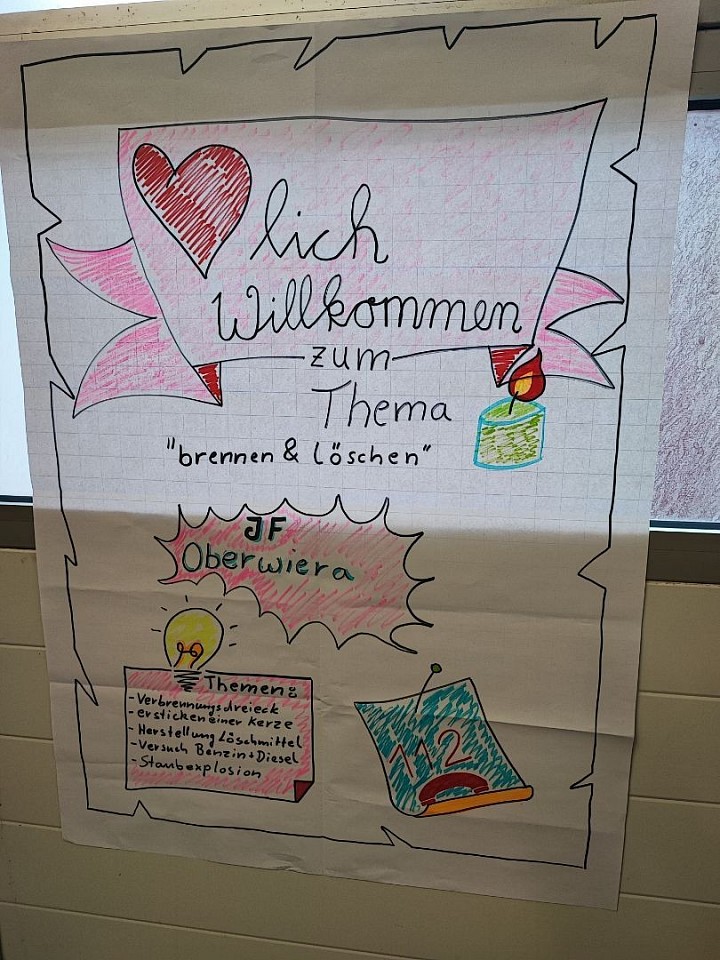 lich
Willkommen
zum
Thema
"brennen & löschen"
JF
Oberwiera
Themen:
- Verbrennungsdreieck
- ersticken einer Kerze
- Herstellung Löschmittel
- Versuch Benzin + Diesel
- Staubexplosion
112